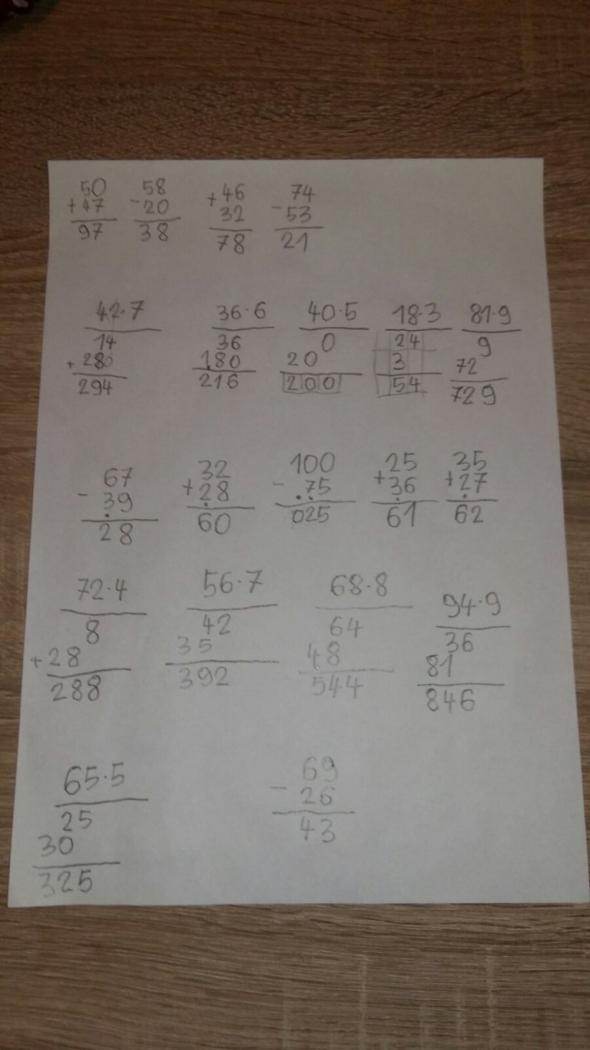 50 58 +46 74
+47 -20 32 -53
97 38 78 21
42·7 36·6 40·5 18·3 81·9
14 36 0 24 9
+280 180 20 3 72
294 216 200 54 729
67 32 100 25 35
-39 +28 -75 +36 +27
28 60 025 61 62
72·4 56·7 68·8 94·9
8 42 64 36
+28 35 48 81
288 392 544 846
65·5 69
25 -26
30 43
325